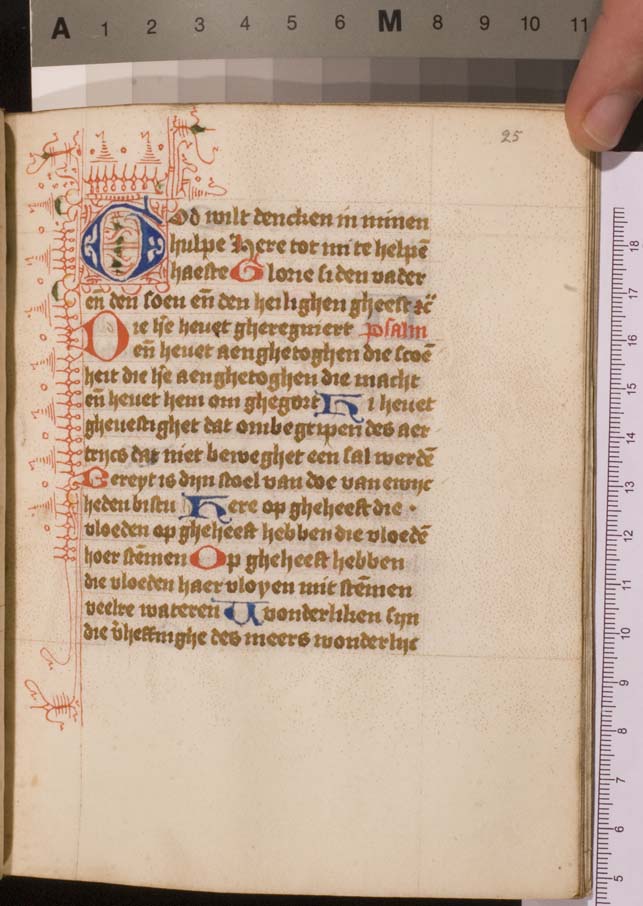 25
God wilt dencken in minen
hulpe Here tot mi te helpē
haeste Glorie si den vader
eñ den soen eñ den heilighen gheest
Die h̄e heuet gheregniert psalm
eñ heuet aenghetoghen die scoē
heit die h̄e aenghetoghen die macht
eñ heuet hem om ghegort Hi heuet
gheuestighet dat ombegripen des aer
trijcs dat niet beweghet een sal werdē
Bereyt is dijn stoel van doe van ewijc
heden bistu Here op gheheest die
vloeden op gheheest hebben die vloedē
hoer stēmen Op gheheest hebben
die vloeden haer vloyen mit stēmen
veelre wateren Wonderliken sijn
die v̄heffinghe des meers wonderlijc
A 1 2 3 4 5 6 M 8 9 10 11
18
17
16
15
14
13
12
11
10
9
8
7
6
5